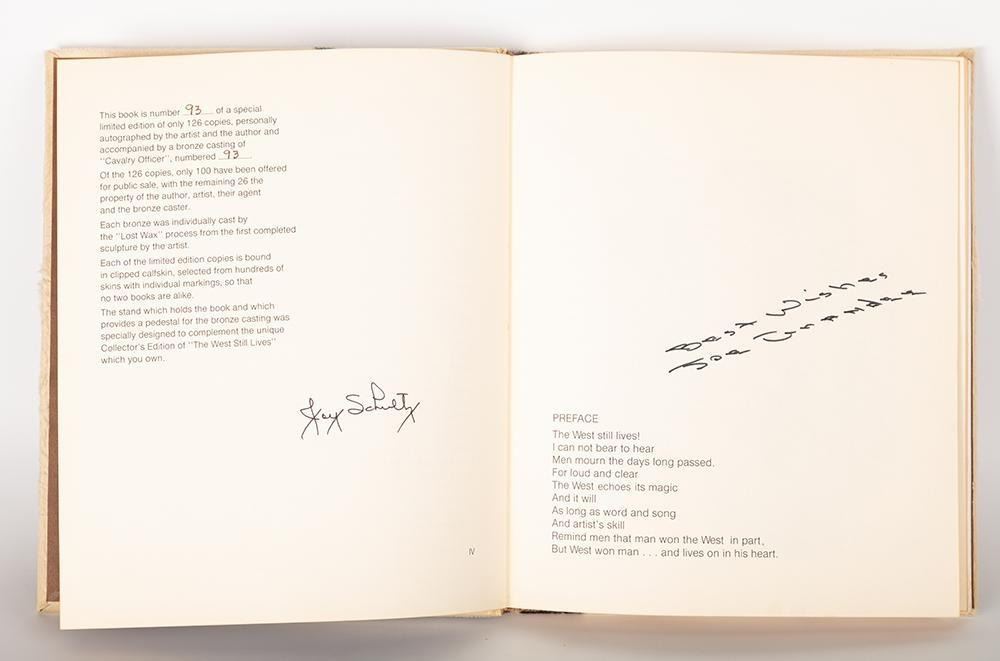 This book is number 93 of a special
limited edition of only 126 copies, personally
autographed by the artist and the author and
accompanied by a bronze casting of
"Cavalry Officer", numbered 93
Of the 126 copies, only 100 have been offered
for public sale, with the remaining 26 the
property of the author, artist, their agent
and the bronze caster.
Each bronze was individually cast by
the "Lost Wax" process from the first completed
sculpture by the artist.
Each of the limited edition copies is bound
in clipped calfskin, selected from hundreds of
skins with individual markings, so that
no two books are alike.
The stand which holds the book and which
provides a pedestal for the bronze casting was
specially designed to complement the unique
Collector's Edition of "The West Still Lives"
which you own.
Schultz
IV
Best Wishes
Joe Grandee
PREFACE
The West still lives!
I can not bear to hear
Men mourn the days long passed.
For loud and clear
The West echoes its magic
And it will
As long as word and song
And artist's skill
Remind men that man won the West in part,
But West won man . . . and lives on in his heart.